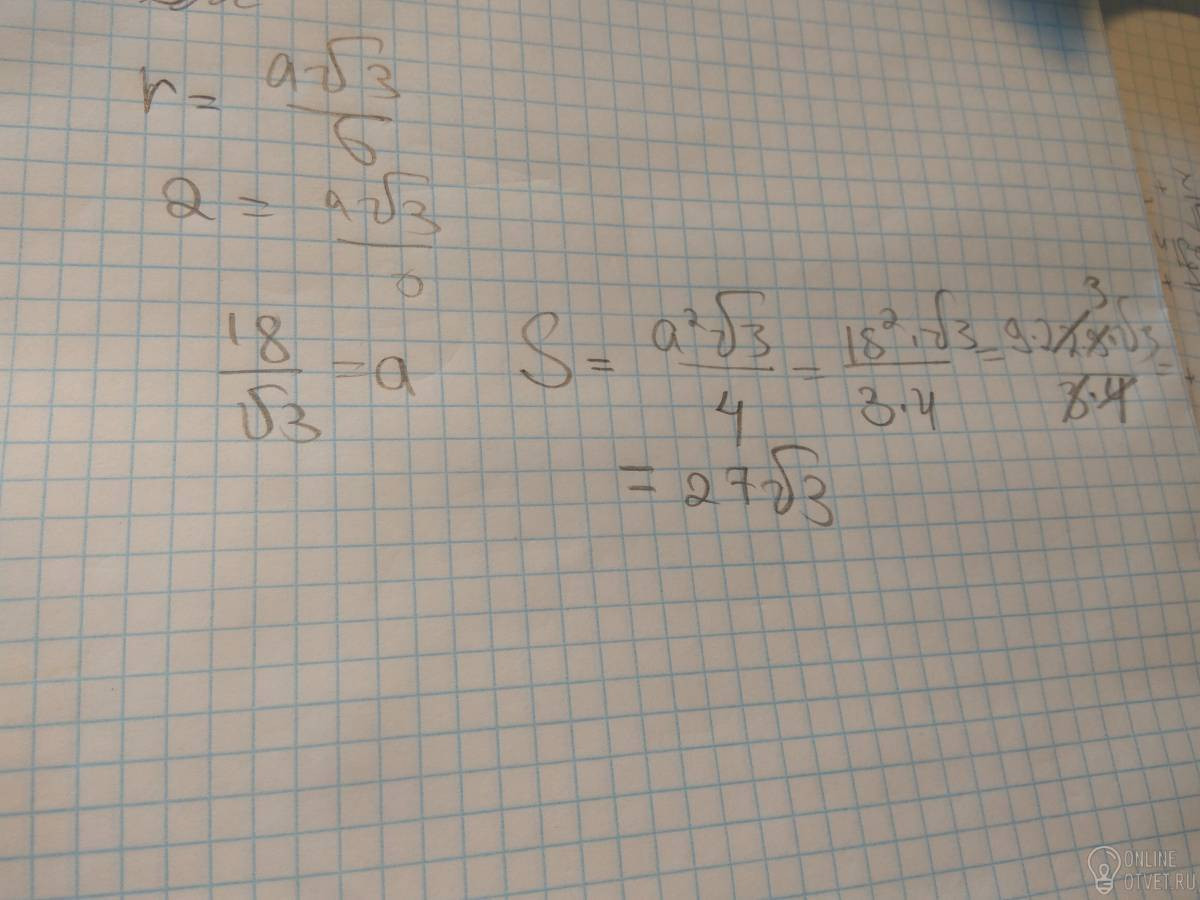 r = a√3/6
2 = a√3/6
18/√3 = a
S = a²√3/4 = 18²·√3/3·4 =
= 27√3
ONLINE
OTVET.RU